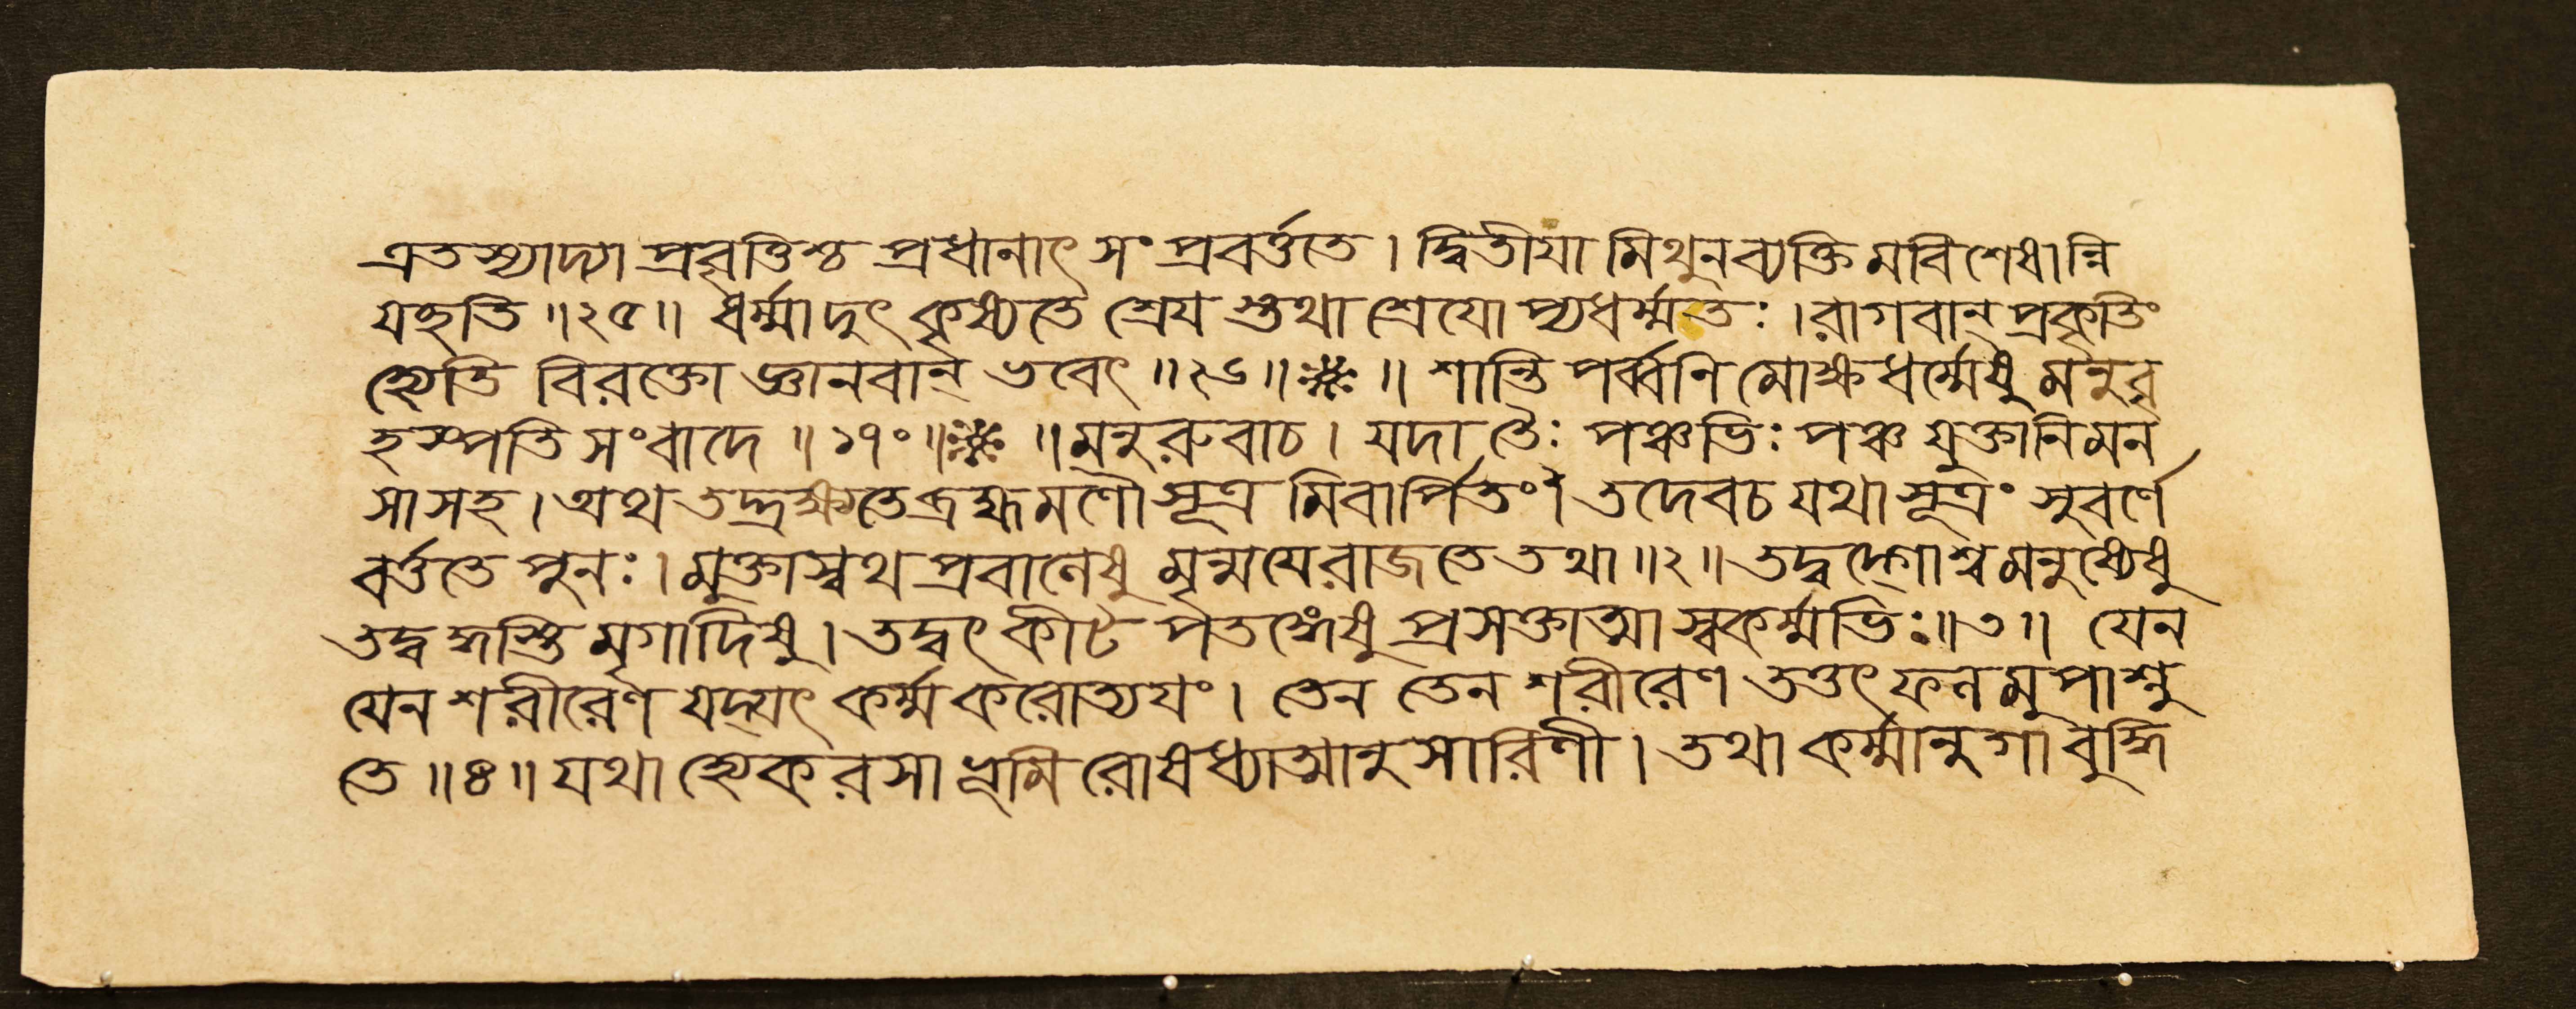 এতস্যাদ্যা প্রবৃত্তিশ্চ প্রধানাৎ সংপ্রবর্ত্ততে । দ্বিতীযা মিথুনব্যক্তিমবিশেষান্নি
যচ্ছতি ॥২৫॥ ধর্ম্মাদুৎকৃষ্যতে শ্রেয স্তথাশ্রেযোপ্যধর্ম্মতঃ । রাগবান্ প্রকৃতিং
হ্যেতি বিরক্তো জ্ঞানবান্ ভবেৎ ॥২৬॥ ॥ শান্তিপর্ব্বনি মোক্ষধর্ম্মেষু মনুবৃ
হস্পতিসংবাদে ॥১৭০॥ ॥ মনুরুবাচ । যদা তৈঃ পঞ্চভিঃ পঞ্চ যুক্তানি মন
সা সহ । অথ তদ্দ্রক্ষ্যতে ব্রহ্ম মণৌ সূত্রমিবার্পিতং । তদেব চ যথা সূত্রং সুবর্ণে
বর্ত্ততে পুনঃ । মুক্তাস্বথ প্রবালেষু মৃন্ময়ে রাজতে তথা ॥২॥ তদ্বদ্গোশ্বমনুষ্যেষু
তদ্বদ্ধস্তিমৃগাদিষু । তদ্বৎ কীটপতঙ্গেষু প্রসক্তাত্মা স্বকর্ম্মভিঃ ॥৩॥ যেন
যেন শরীরেণ যদ্যৎ কর্ম্ম করোত্যযং । তেন তেন শরীরেণ তত্তৎ ফলমুপাশ্নু
তে ॥৪॥ যথা হ্যেকরসা ভূমিরোষধ্যাত্মানুসারিণী । তথা কর্ম্মানুগা বুদ্ধি